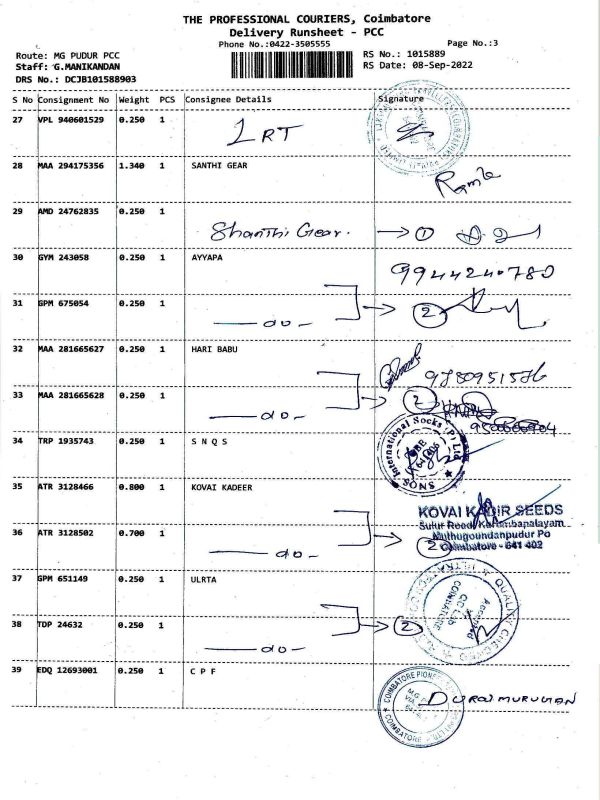 THE PROFESSIONAL COURIERS, Coimbatore
Delivery Runsheet - PCC
Phone No.:0422-3505555
Page No.:3
Route: MG PUDUR PCC
RS No.: 1015889
Staff: G.MANIKANDAN
RS Date: 08-Sep-2022
DRS No.: DCJB101588903
S No Consignment No Weight PCS Consignee Details Signature
27 VPL 940601529 0.250 1 LRT
28 MAA 294175356 1.340 1 SANTHI GEAR
29 AMD 24762835 0.250 1
Shanthi Gear. → 1
30 GYM 243058 0.250 1 AYYAPA
9944240780
31 GPM 675054 0.250 1
— do — → 2
32 MAA 281665627 0.250 1 HARI BABU
33 MAA 281665628 0.250 1
— do — → 2
34 TRP 1935743 0.250 1 S N Q S
International Socks (P) Ltd
SNQS
35 ATR 3128466 0.800 1 KOVAI KADEER
KOVAI KADIR SEEDS
Sulur Road, Karumbapalayam
Muthugoundanpudur Po
Coimbatore - 641 402
36 ATR 3128502 0.700 1
— do — → 2
37 GPM 651149 0.250 1 ULRTA
QUALITY CHECKED
Accepted
COIMBATORE
38 TDP 24632 0.250 1
— do — → 2
39 EDQ 12693001 0.250 1 C P F
COIMBATORE PIONEER
COIMBATORE